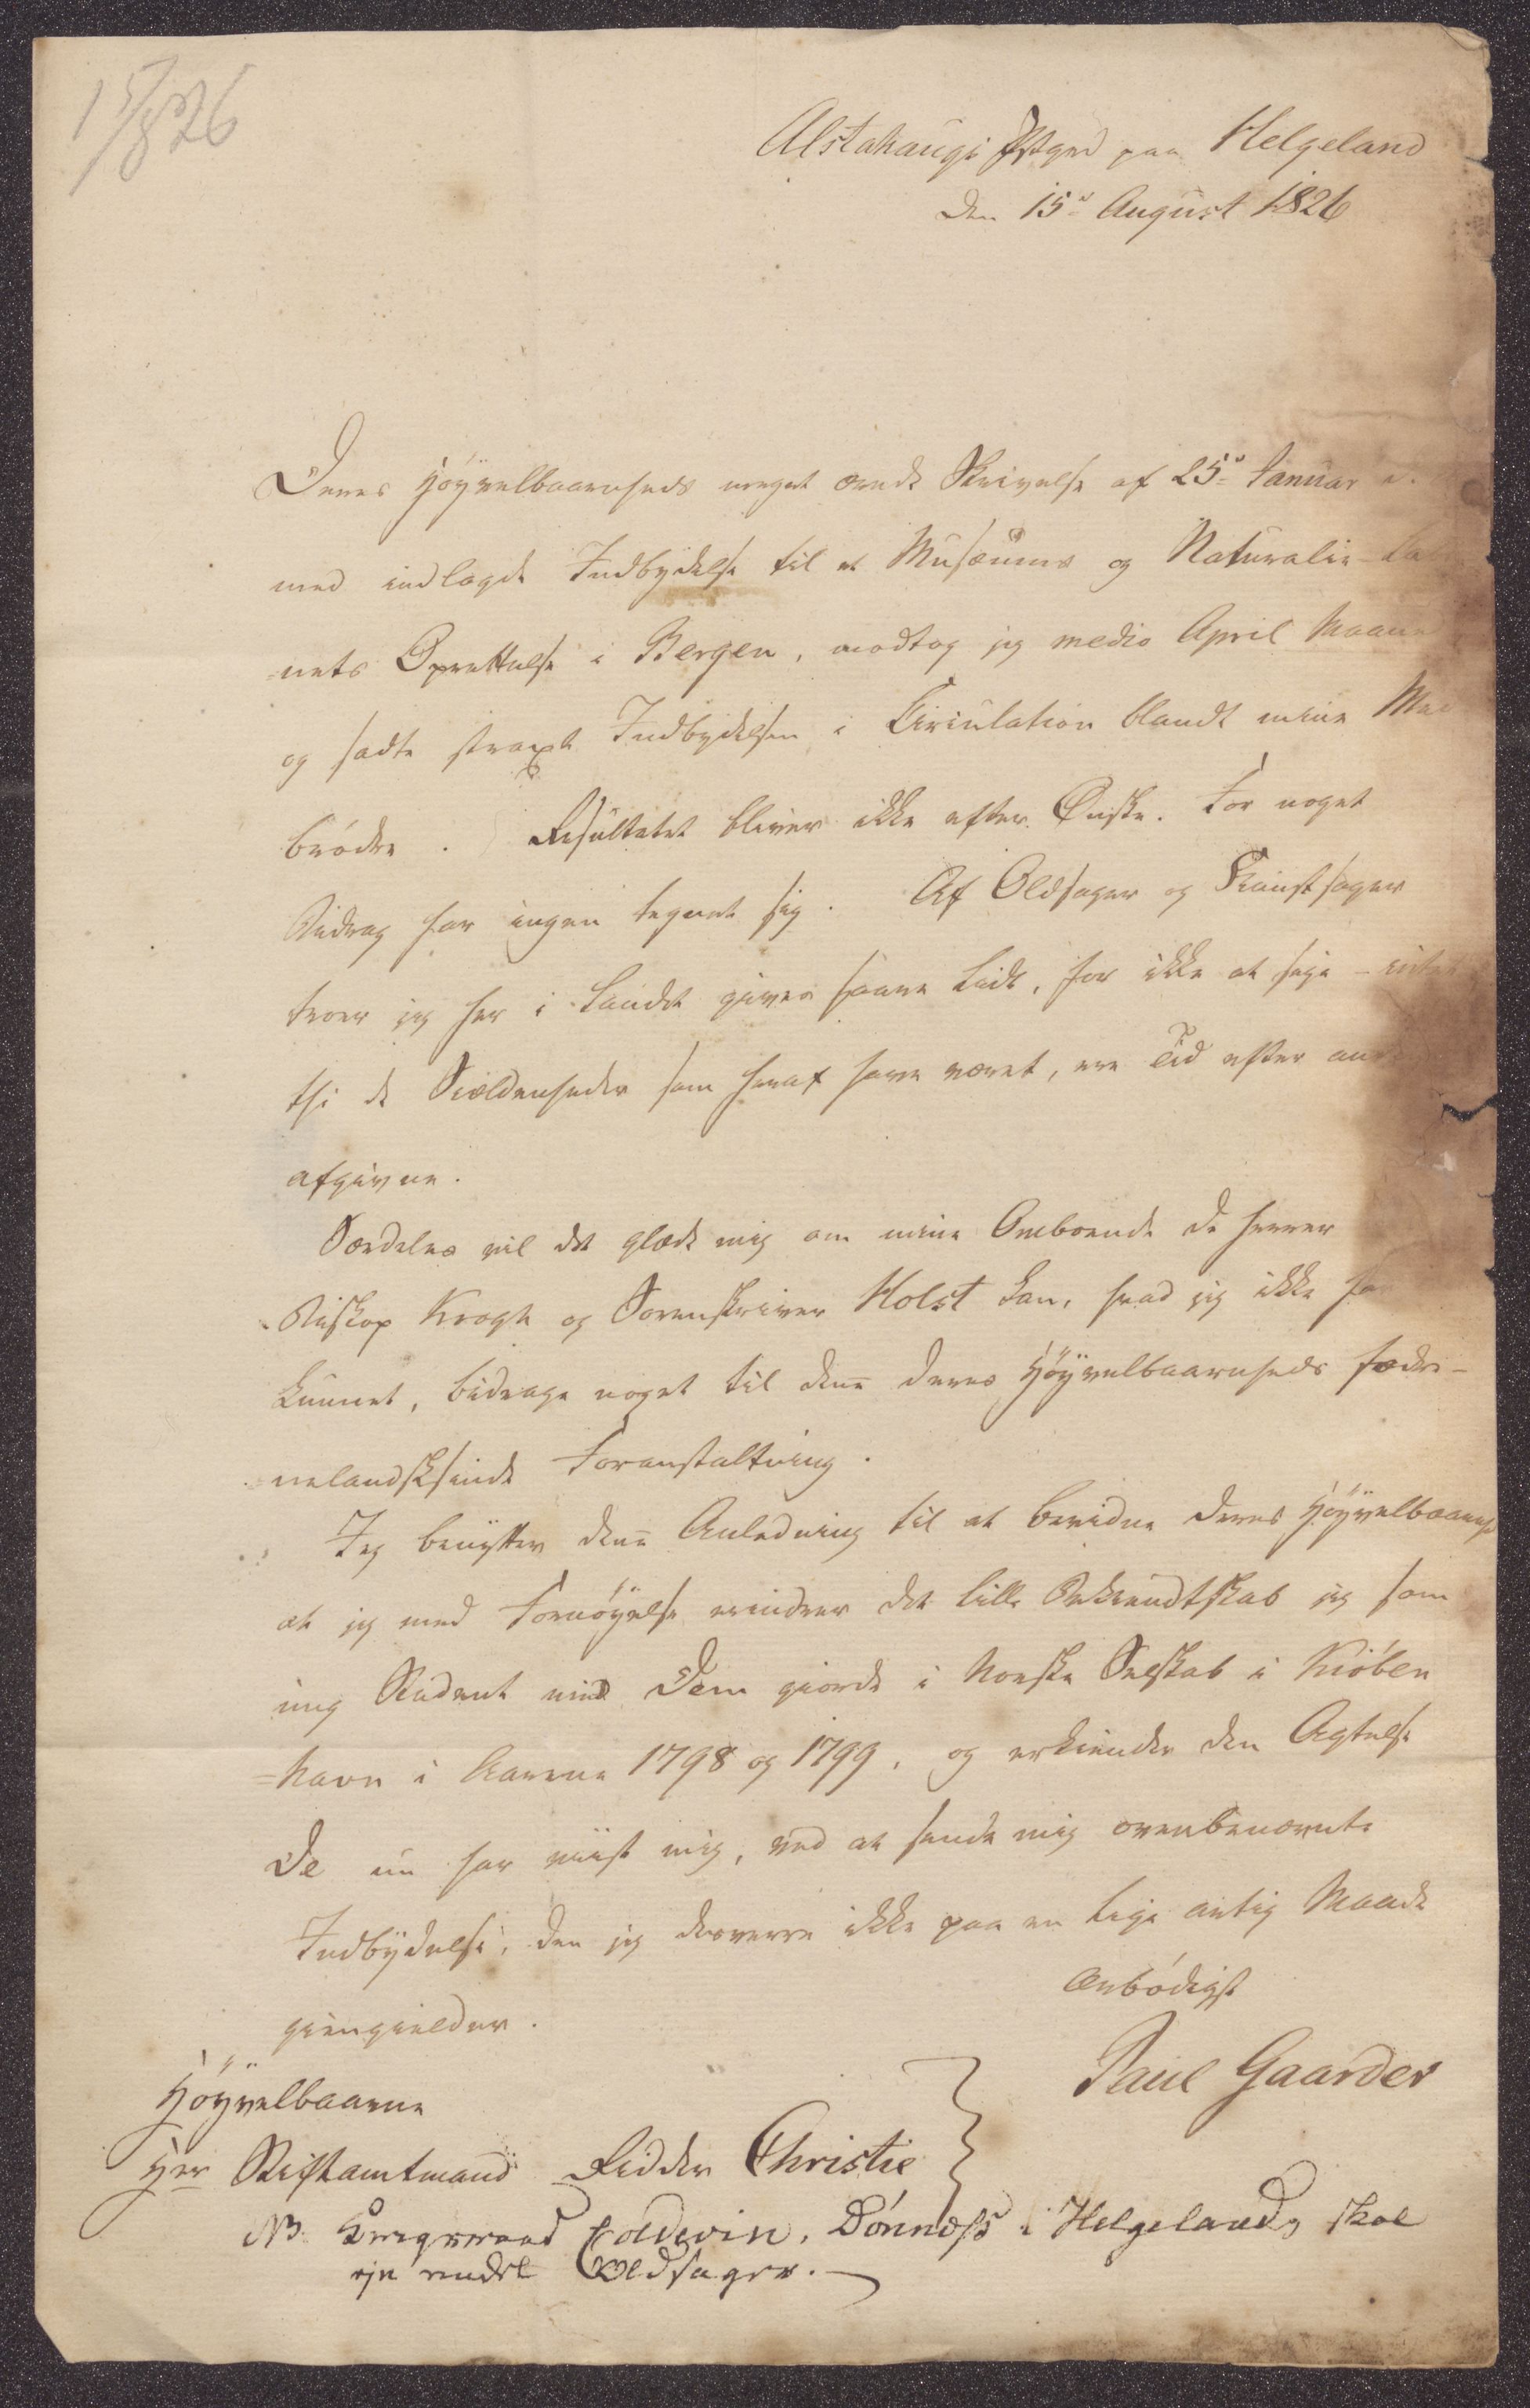 15/8 26
Alstahaugs Pstgrd paa Helgeland
den 15d August 1826
Deres Høyvelbaarenheds meget ærede Skrivelse af 25d Januar d.
med indlagde Indbydelse til et Musæums og Naturalie-Cabi
=nets Oprettelse i Bergen, modtog jeg medio April Maaned
og sadte straxt Indbydelsen i Circulation blandt mine Med
brödre. Resultatet bliver ikke efter Ønske. For noget
Bidrag har ingen tegnet sig. Af Oldsager og Kunstsager
troer jeg her i Landet gives saare lidt, for ikke at sige - intet
thi de Sieldenheder som heraf have været, ere Tid efter anden
afgivne.
Særdeles vil det glæde mig om mine Omboende de Herrer
Biskop Krogh og Sorenskriver Holst kan, hvad jeg ikke har
kunnet, bidrage noget til denne Deres Høyvelbaarenheds fædre-
=nelandsksindede Foranstaltning.
Jeg benytter denne Anledning til at bevidne Deres Høyvelbaarenhed
at jeg med Fornöyelse erindrer det lille Bekiendtskab jeg som
ung Student med Dem giorde i Norske Selskab i Kiöben
=havn i Aarene 1798 og 1799, og erkiender den Agtelse
De nu har viist mig, ved at sende mig ovenbenævnte
Indbydelse, den jeg desværre ikke paa en lige artig Maade
giengielder.
Ærbödigst
Paul Gaarder
Høyvelbaarne
Hr Stiftamtmand Ridder Christie
NB. Coldevin, Dönnæss i Helgeland, skal
eje endel Oldsager.